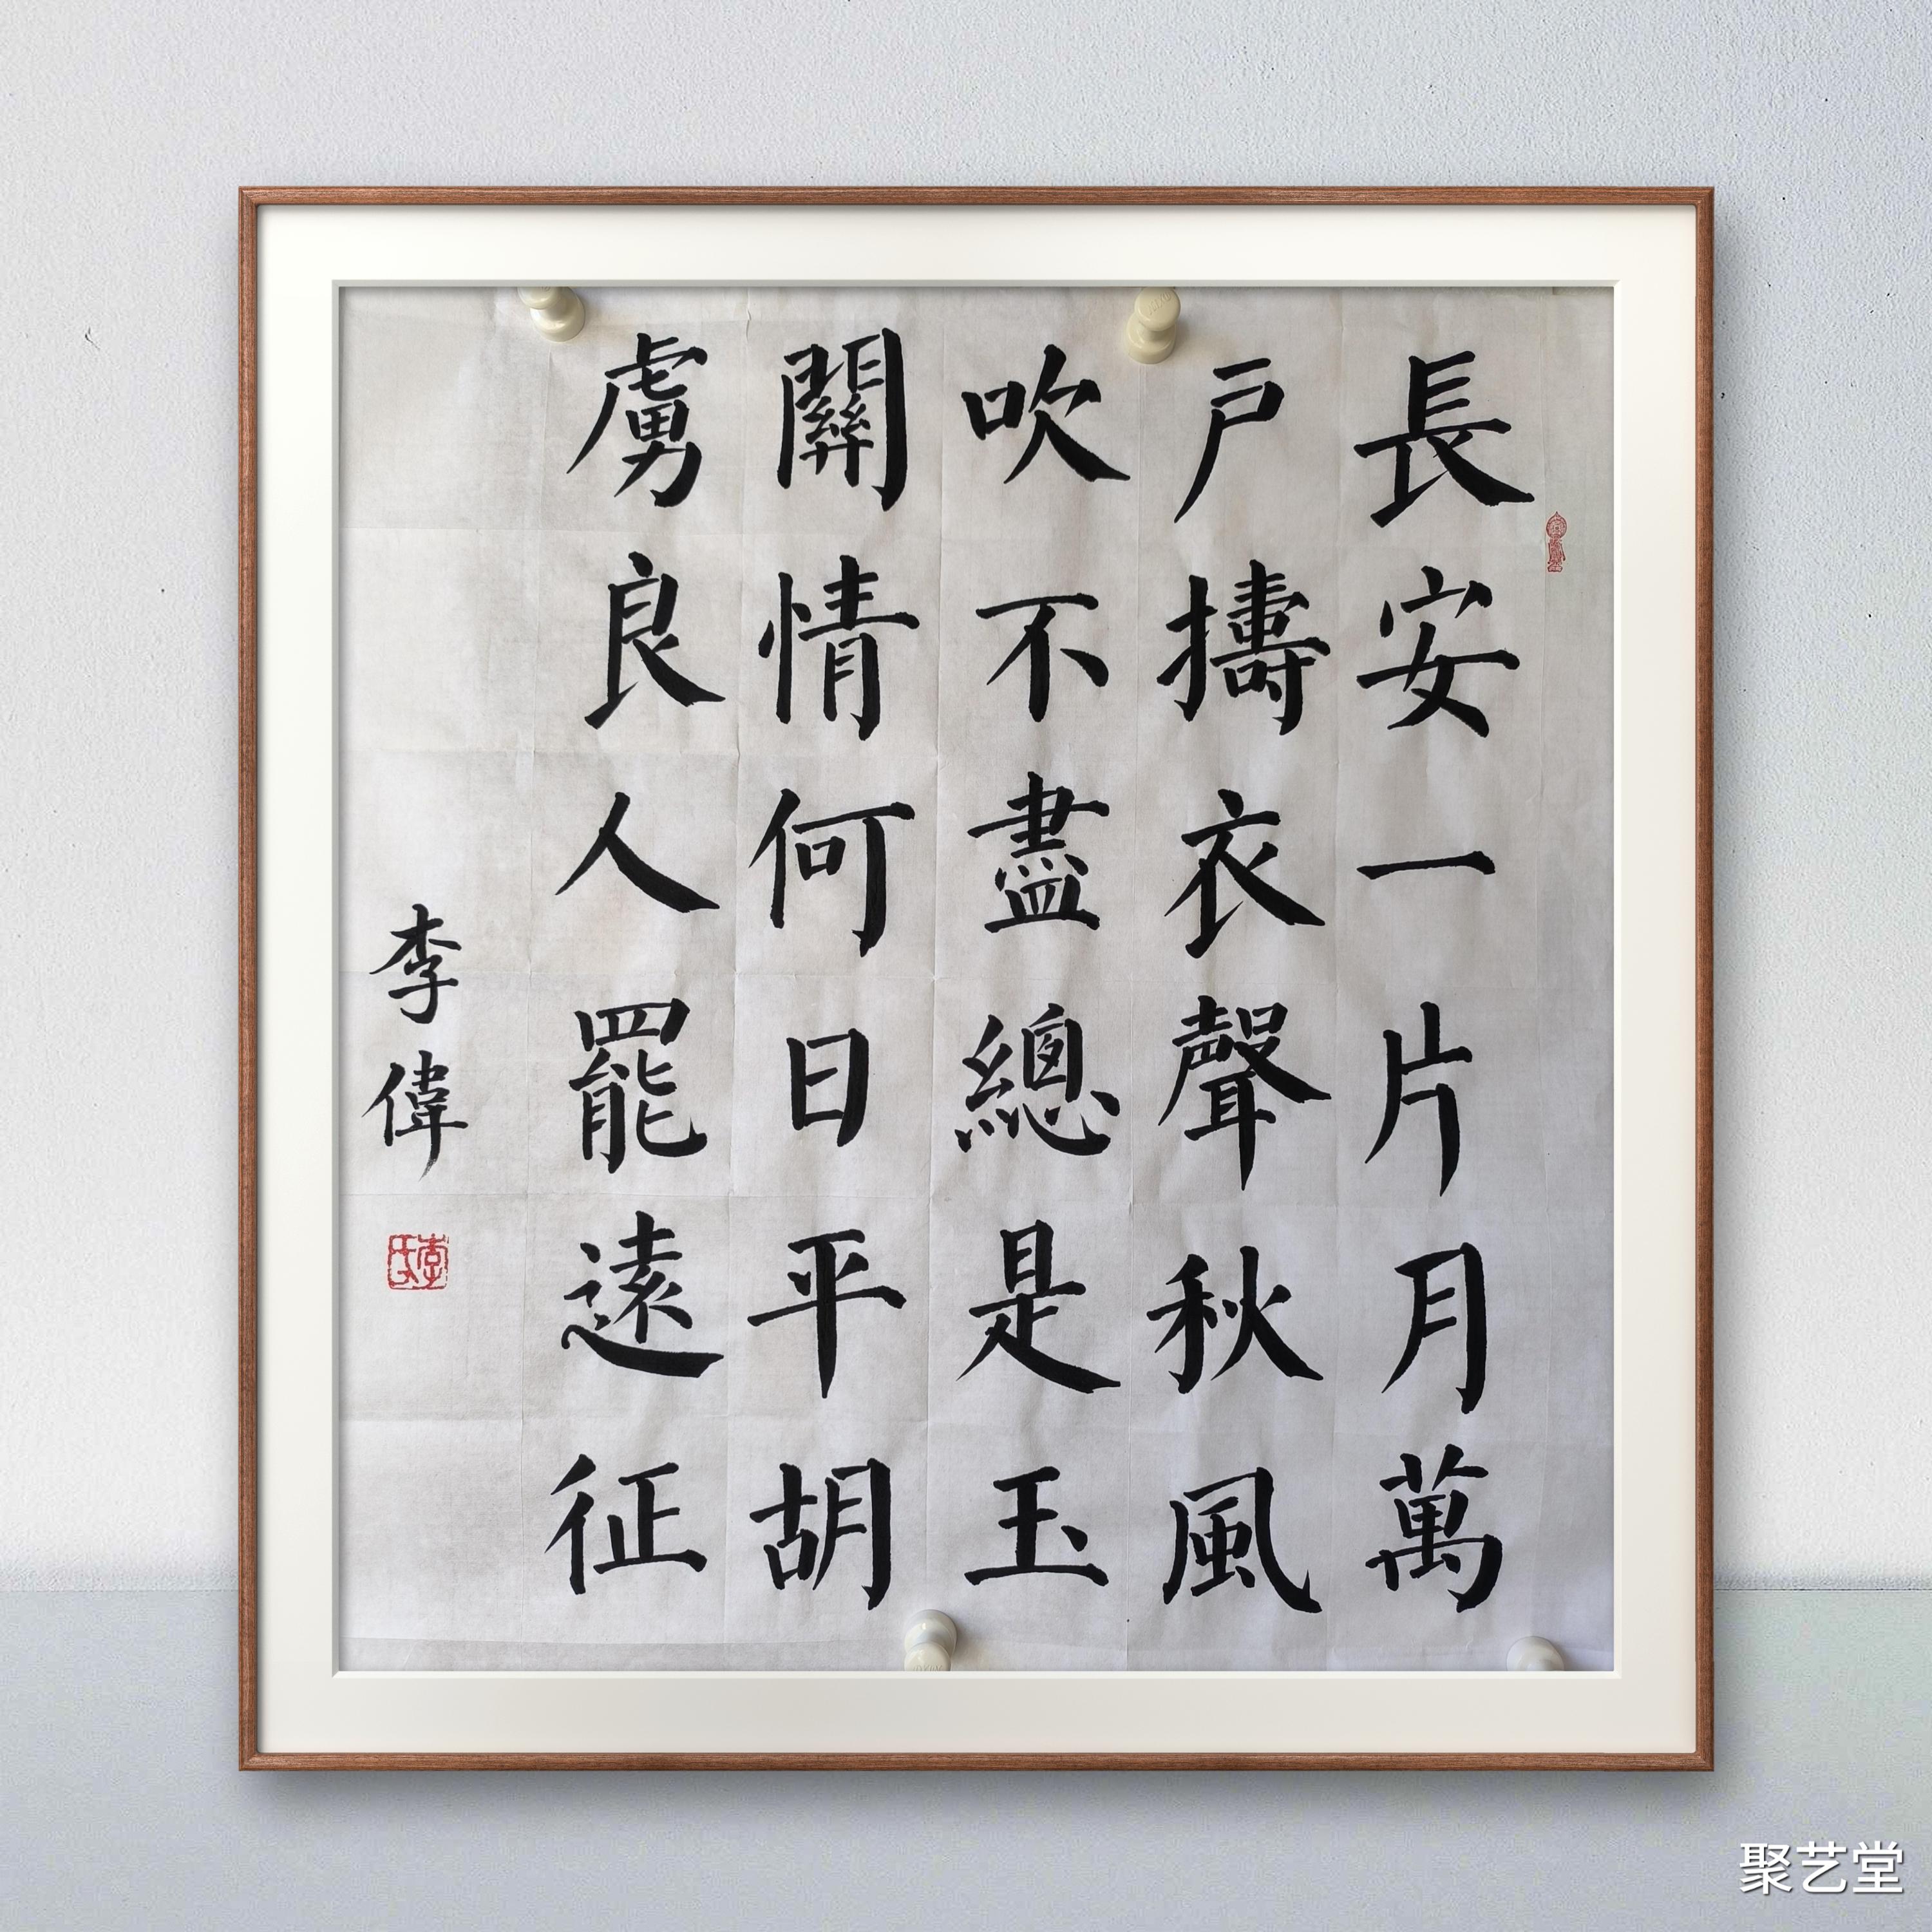 長安一片月萬
戶擣衣聲秋風
吹不盡總是玉
關情何日平胡
虜良人罷遠征
李偉
李氏
聚艺堂